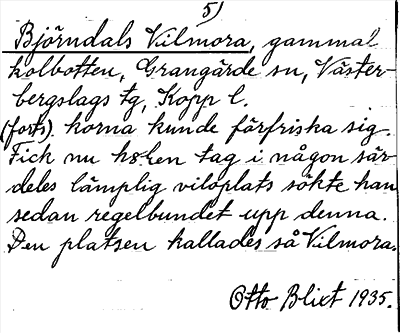 5)
Björndals Vilmora, gammal
kolbotten, Grangärde sn, Väster-
bergslags tg, Kopp l.
(forts). korna kunde färfriska sig.
Fick nu kon tag i någon sär-
deles lämplig viloplats sökte han
sedan regelbundet upp denna.
Den platsen kallades så Vilmora.
Otto Blixt 1935.